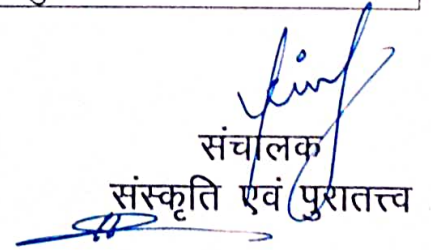 संचालक
संस्कृति एवं पुरातत्त्व